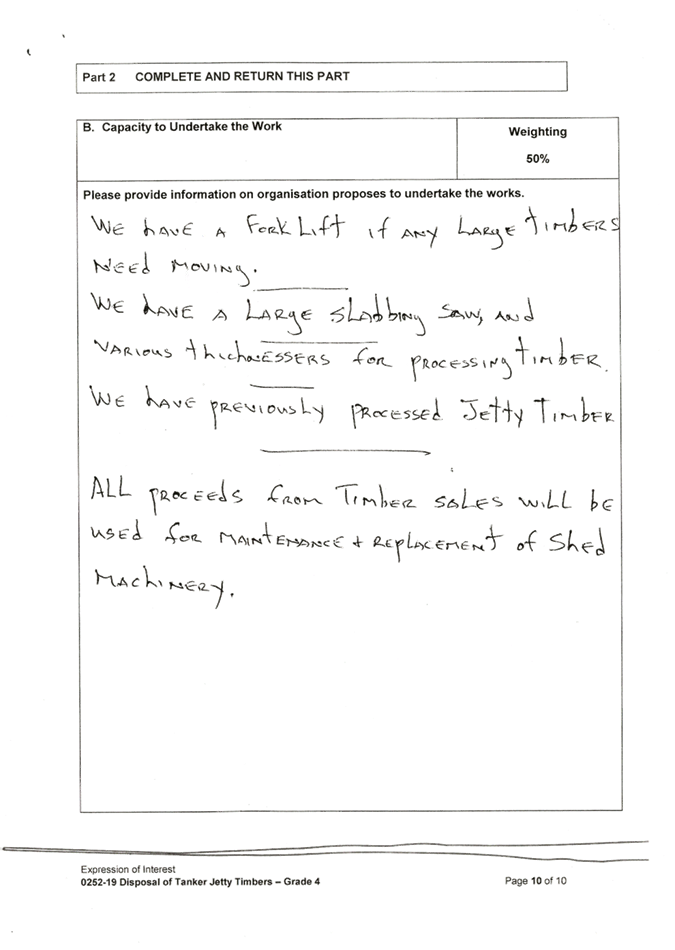 Part 2 COMPLETE AND RETURN THIS PART
B. Capacity to Undertake the Work
Weighting
50%
Please provide information on organisation proposes to undertake the works.
WE HAVE A FORK LIFT if ANY LARGE TIMBERS
NEED MOVING.
WE HAVE A LARGE SLABBING SAW, AND
VARIOUS thicknESSERS for PROCESSING TIMBER.
WE HAVE PREVIOUSLY PROCESSED JETTY TIMBER
ALL PROCEEDS from TIMBER SALES WILL BE
USED for MAINTENANCE + REPLACEMENT of SHED
MACHINERY.
Expression of Interest
0252-19 Disposal of Tanker Jetty Timbers – Grade 4
Page 10 of 10